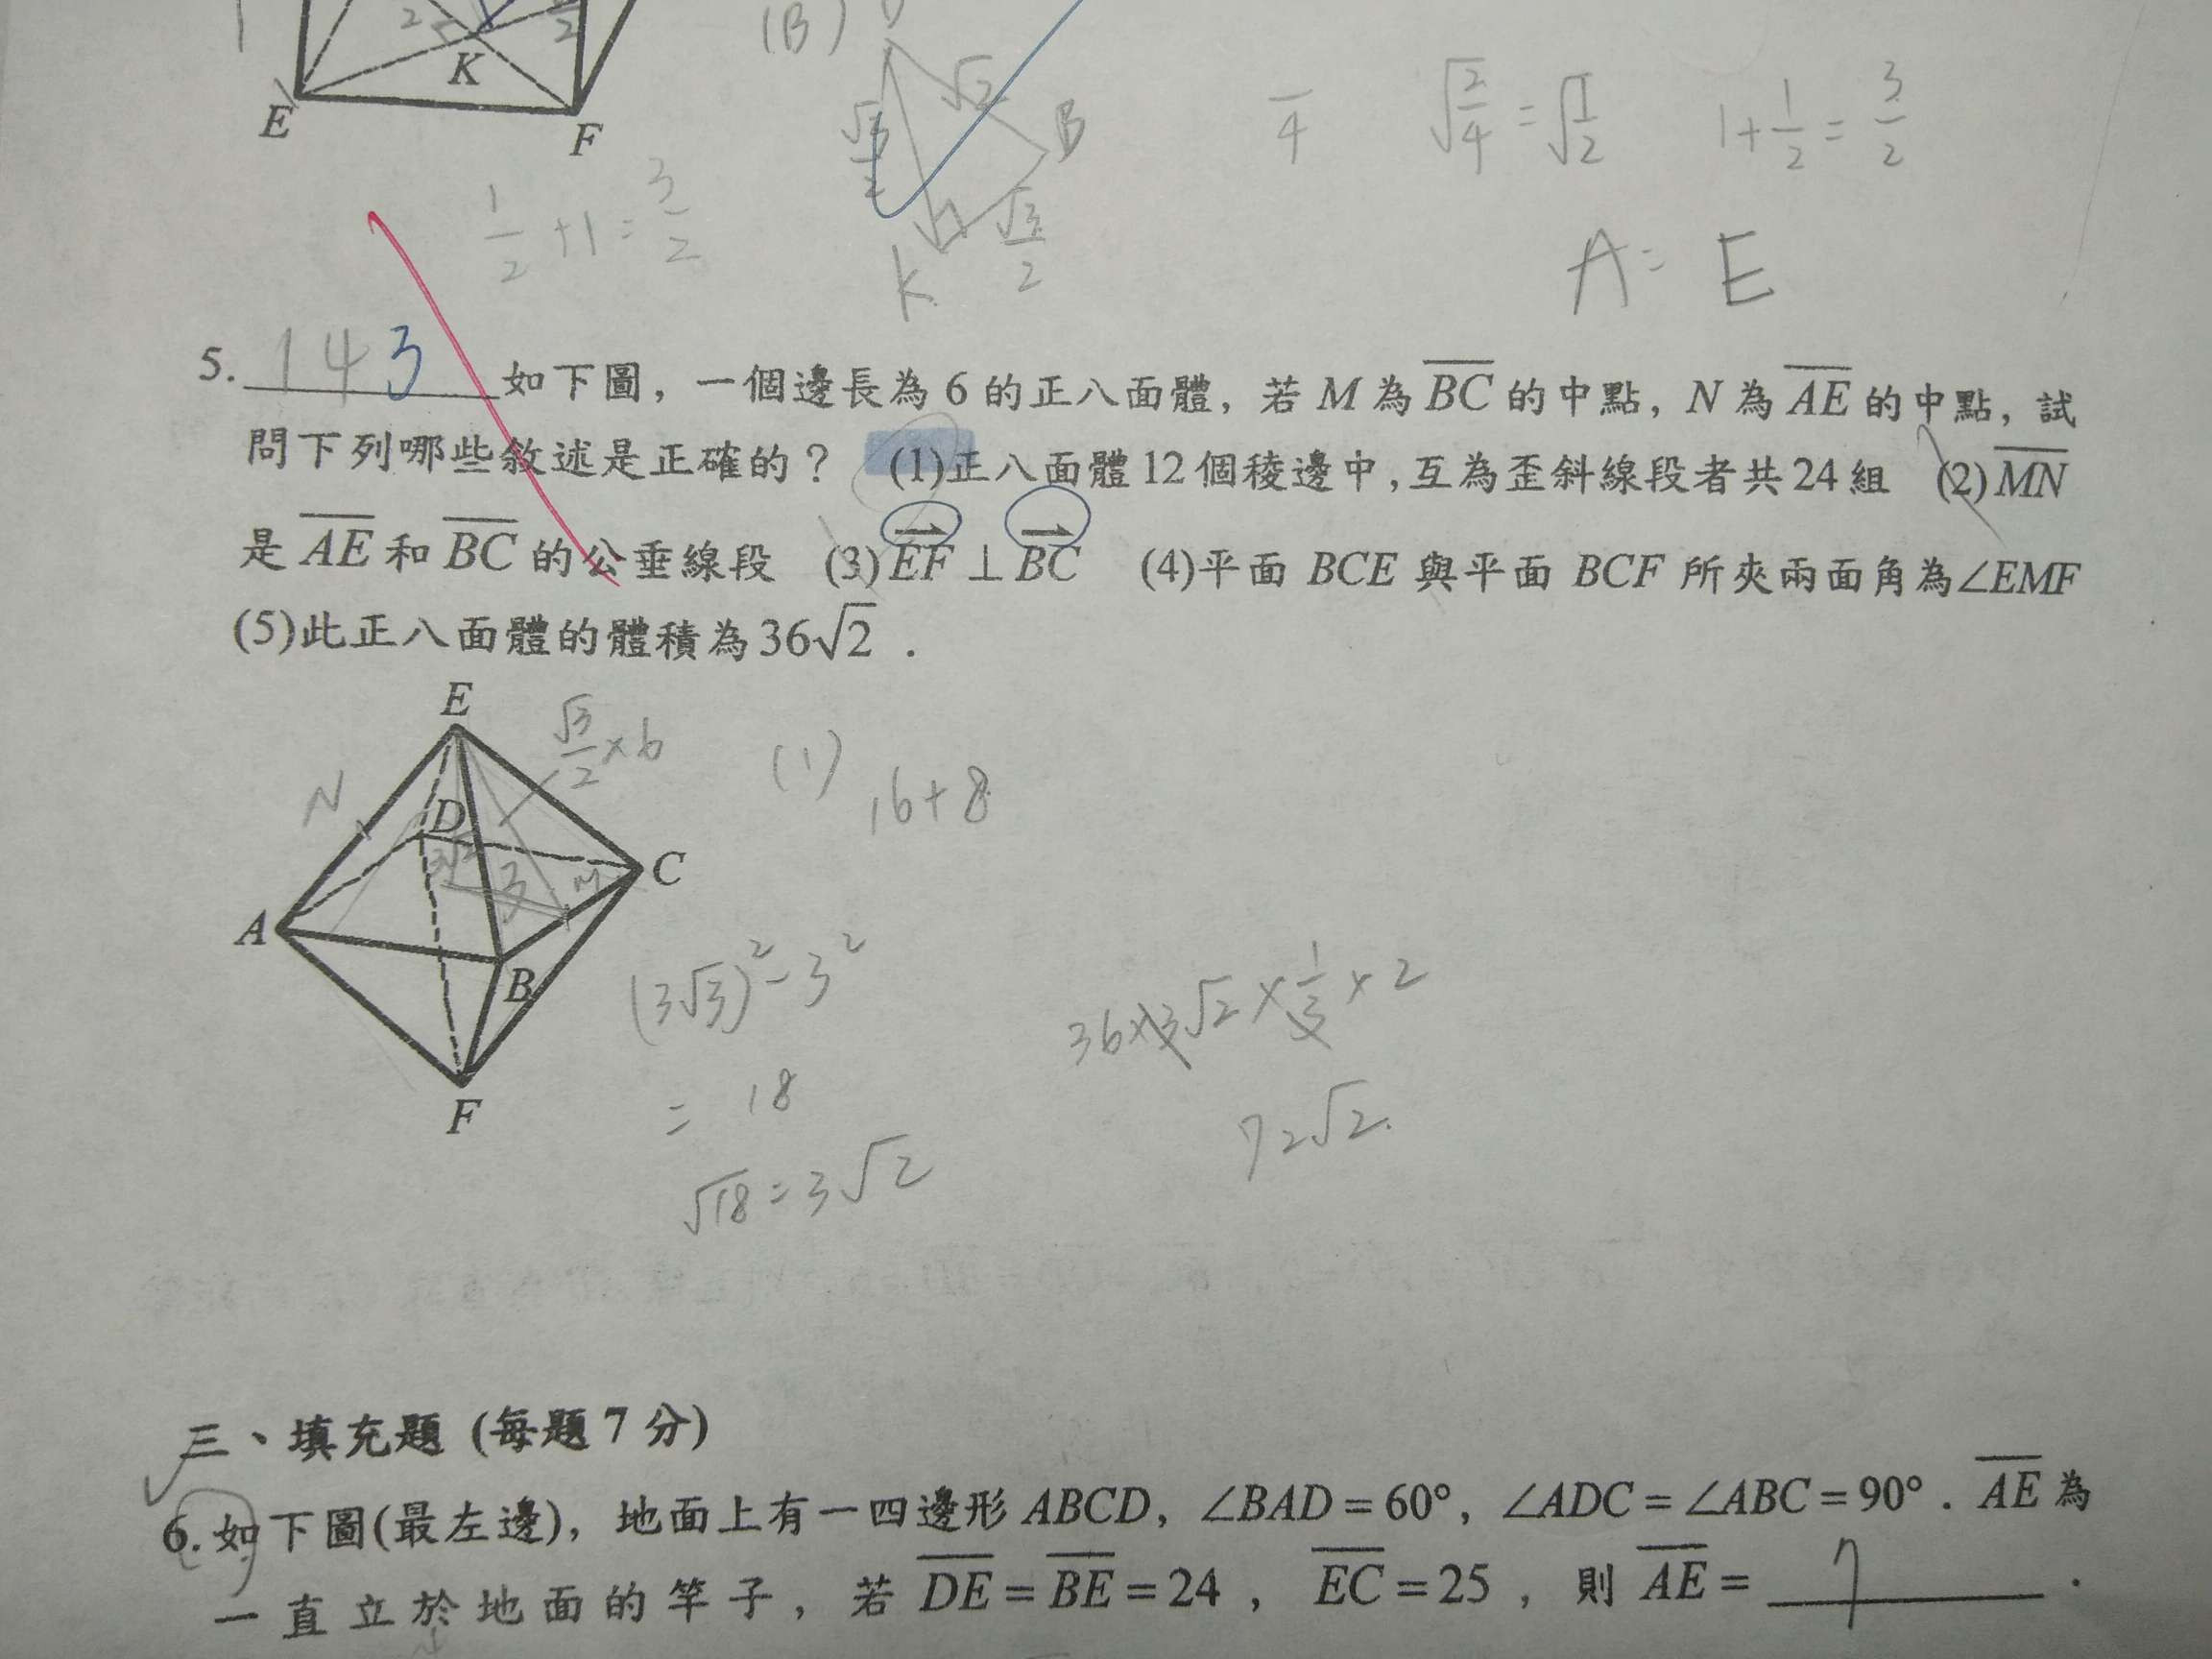 K
E
F
(B)
√2
B
√3/2
K
√3/2
4
√(2/4) = √(1/2)
1+1/2=3/2
1/2+1=3/2
A= E
5. 143 如下圖，一個邊長為 6 的正八面體，若 M 為 BC 的中點，N 為 AE 的中點，試
問下列哪些敘述是正確的？ (1)正八面體12個稜邊中，互為歪斜線段者共24組 (2)MN
是 AE 和 BC 的公垂線段 (3)EF ⊥ BC (4)平面 BCE 與平面 BCF 所夾兩面角為∠EMF
(5)此正八面體的體積為36√2．
E
√3/2×6
(1) 16+8
N
D
3
M
C
A
B
F
(3√3)²-3²
= 18
√18=3√2
36×3√2×1/3×2
72√2.
三、填充題 (每題7分)
6. 如下圖(最左邊)，地面上有一四邊形 ABCD，∠BAD=60°，∠ADC=∠ABC=90°．AE 為
一直立於地面的竿子，若 DE=BE=24，EC=25，則 AE= 7 ．